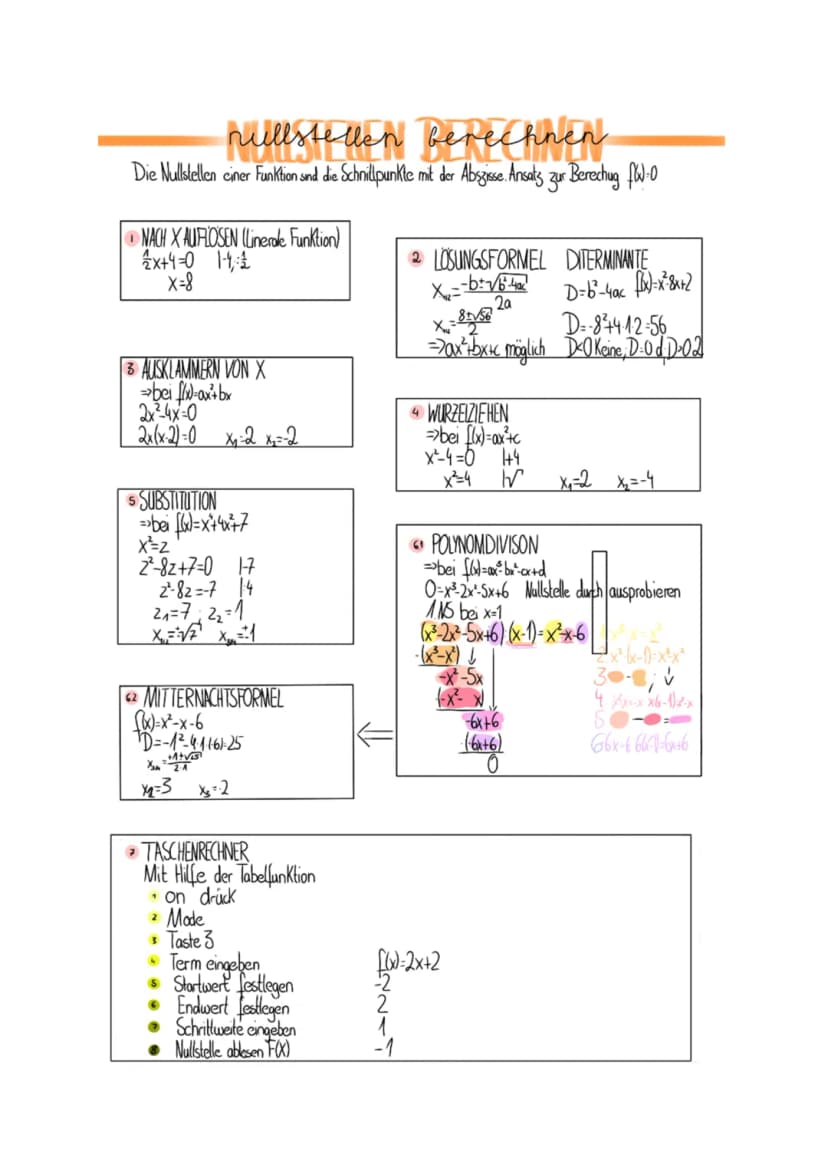 NULLSTELLEN BERECHNEN
nullstellen berechnen
Die Nullstellen einer Funktion sind die Schnittpunkte mit der Abszisse. Ansatz zur Berechug f(x)=0
1 NACH X AUFLÖSEN (Linerale Funktion)
½x+4=0 |-4, :½
x=8
2 LÖSUNGSFORMEL DITERMINANTE
X₁/₂=-b±√b²-4ac/2a D=b²-4ac f(x)=x²-8x+2
X₁/₂=8±√56/2 D=-8²+4·1·2=56
⇒ax²+bx+c möglich D<0 Keine, D=0 d, D>0 2
3 AUSKLAMMERN VON X
⇒bei f(x)=ax²+bx
2x²-4x=0
2x(x-2)=0 x₁=2 x₂=-2
4 WURZELZIEHEN
⇒bei f(x)=ax²+c
x²-4=0 |+4
x²=4 |√ x₁=2 x₂=-4
5 SUBSTITUTION
⇒bei f(x)=x⁴+4x²+7
x²=z
z²-8z+7=0 |-7
z²-8z=-7 |4
z₁=7; z₂=1
X₁/₂=±√7 X₃/₄=±1
6.1 POLYNOMDIVISON
⇒bei f(x)=ax³-bx²-cx+d
0=x³-2x²-5x+6 Nullstelle durch ausprobieren
1 NS bei x=1
(x³-2x²-5x+6)(x-1)=x²-x-6
-(x³-x²) ↓
-x²-5x
(-x²- x)
-6x+6
(-6x+6)
0
2 x²·(x-1)=x³-x²
3 - ; ↓
4
5 - =
6.2 MITTERNACHTSFORMEL
f(x)=x²-x-6
D=-1²-4·1·(-6)=25
X₂/₃=+1±√25/2·1
x₂=3 x₃=-2
7 TASCHENRECHNER
Mit Hilfe der Tabelfunktion
1 on drück
2 Mode
3 Taste 3
4 Term eingeben f(x)=2x+2
5 Startwert festlegen -2
6 Endwert festlegen 2
7 Schrittweite eingeben 1
8 Nullstelle ablesen F(X) -1